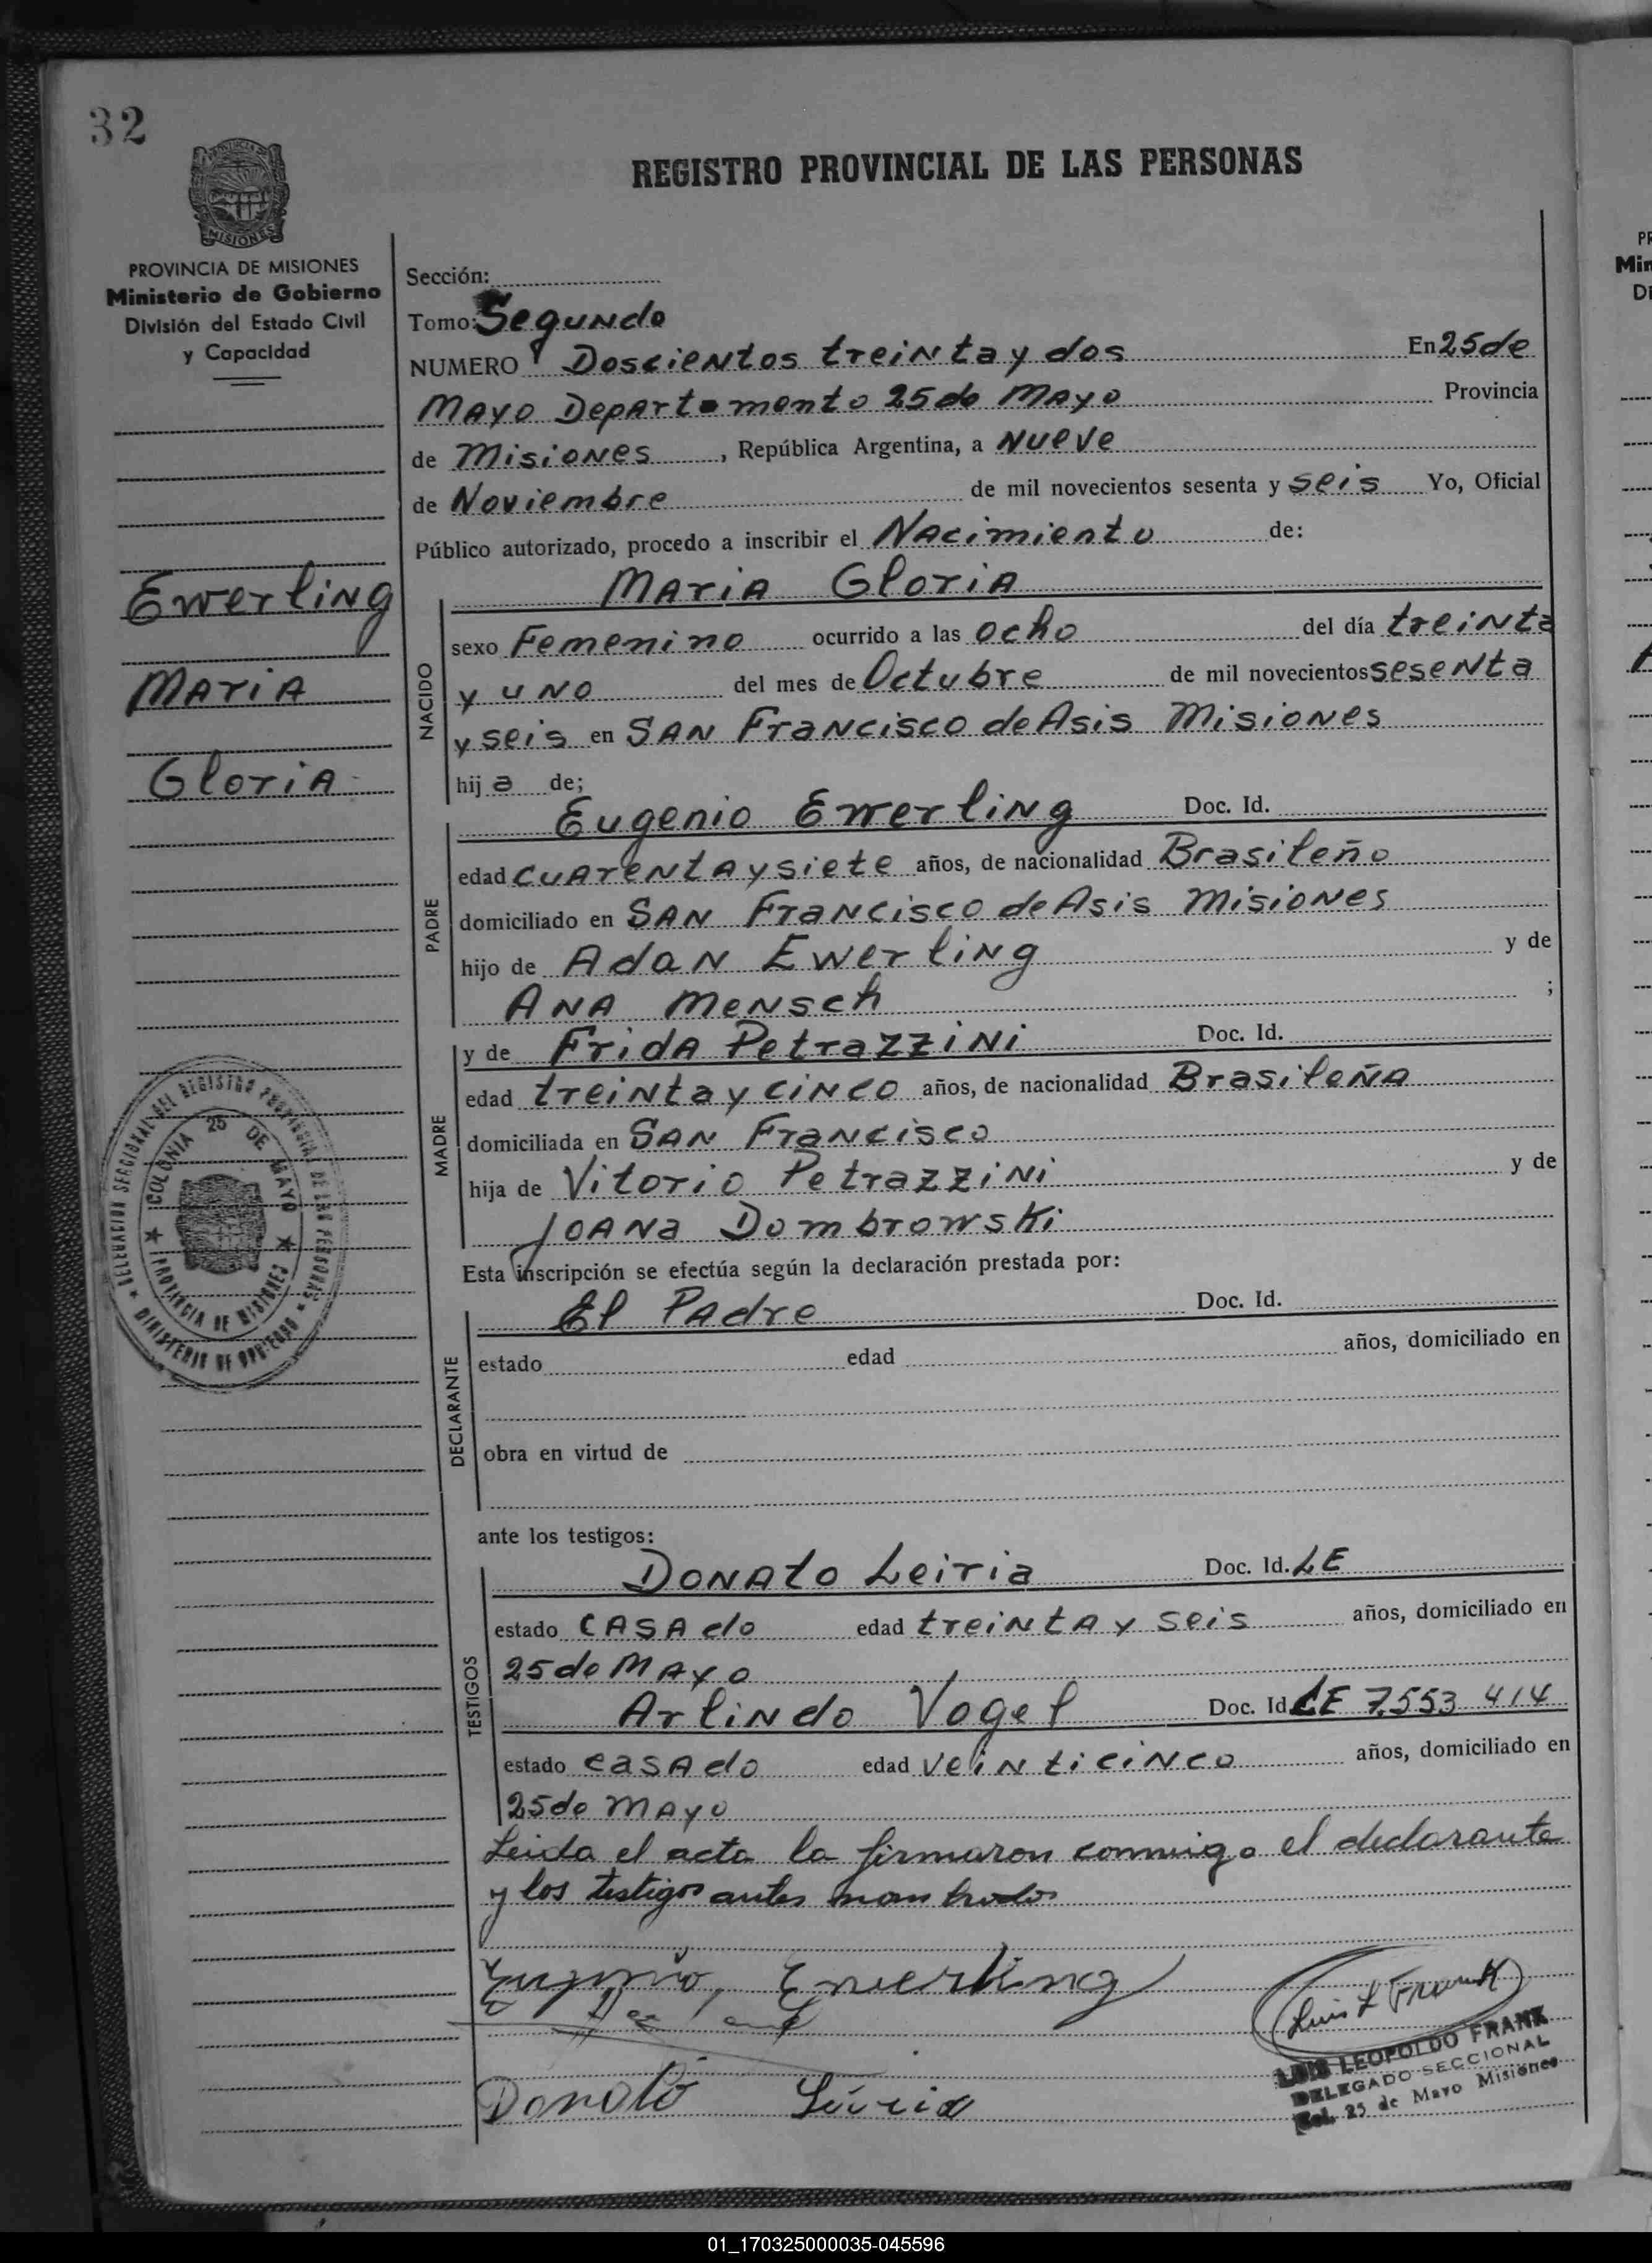 32
MISIONES
REGISTRO PROVINCIAL DE LAS PERSONAS
PROVINCIA DE MISIONES
Ministerio de Gobierno
División del Estado Civil
y Capacidad
Ewerling
Maria
Gloria
Sección:
Tomo: Segundo
NUMERO Doscientos treinta y dos En 25 de
Mayo Departamento 25 de Mayo Provincia
de Misiones, República Argentina, a Nueve
de Noviembre de mil novecientos sesenta y seis Yo, Oficial
Público autorizado, procedo a inscribir el Nacimiento de:
Maria Gloria
NACIDO
sexo Femenino ocurrido a las ocho del día treinta
y uno del mes de Octubre de mil novecientos sesenta
y seis en San Francisco de Asis Misiones
hija de;
Eugenio Ewerling Doc. Id.
PADRE
edad cuarenta y siete años, de nacionalidad Brasileño
domiciliado en San Francisco de Asis Misiones
hijo de Adan Ewerling y de
Ana Mensch ;
y de Frida Petrazzini Doc. Id.
MADRE
edad treinta y cinco años, de nacionalidad Brasileña
domiciliada en San Francisco
hija de Vitorio Petrazzini y de
Joana Dombrowski
Esta inscripción se efectúa según la declaración prestada por:
El Padre Doc. Id.
DECLARANTE
estado edad años, domiciliado en
obra en virtud de
ante los testigos:
Donato Leiria Doc. Id. LE
TESTIGOS
estado Casado edad treinta y seis años, domiciliado en
25 de Mayo
Arlindo Vogel Doc. Id LE 7.553 414
estado casado edad veinticinco años, domiciliado en
25 de Mayo
Leida el acta la firmaron conmigo el declarante
y los testigos antes nombrados
Eugenio, Ewerling
Luis L Frank
LUIS LEOPOLDO FRANK
DELEGADO SECCIONAL
Col. 25 de Mayo Misiones
Donato Leiria
DELEGACION SECCIONAL DEL REGISTRO PROVINCIAL DE LAS PERSONAS
MINISTERIO DE GOBIERNO
COLONIA 25 DE MAYO
PROVINCIA DE MISIONES
PR
Min
Di
01_170325000035-045596